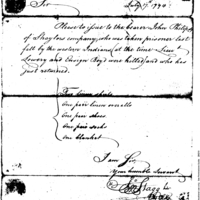 Sir
July 17th 1794
Please to issue to the bearer John Philips
of Shaylors company, who was taken prisoner last
fall by the western Indians at the time Lieut
Lowery and Ensign Boyd were killed and who has
just returned.
Two linen shirts
One pair linen overalls
One pair shoes
One pair socks
One blanket
I am Sir
Your humble Servant